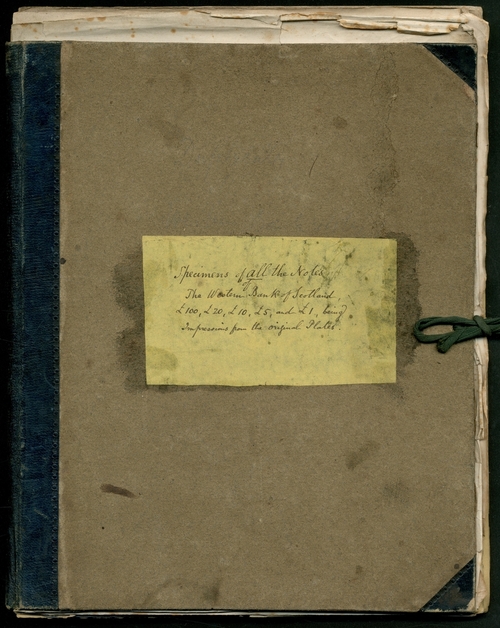 Specimens of all the Notes
of
The Western Bank of Scotland,
£100, £20, £10, £5, and £1, being
Impressions from the original Plates